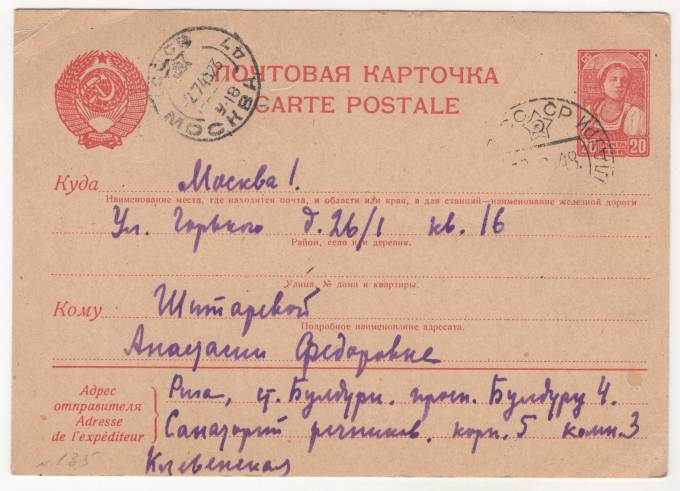 ПОЧТОВАЯ КАРТОЧКА
CARTE POSTALE
МОСКВА
СССР
20 20
Куда Москва 1.
Наименование места, где находится почта, и области или края, а для станций—наименование железной дороги
Ул. Горького д. 26/1 кв. 16
Район, село или деревня.
Улица, № дома и квартиры.
Кому Шитарской
Подробное наименование адресата.
Анастасии Федоровне
Адрес отправителя Рига, ст. Булдури. просп. Булдуру 4.
Adresse de l'expéditeur Санаторий речников. корп. 5 комн. 3
Клевенская
№ 185